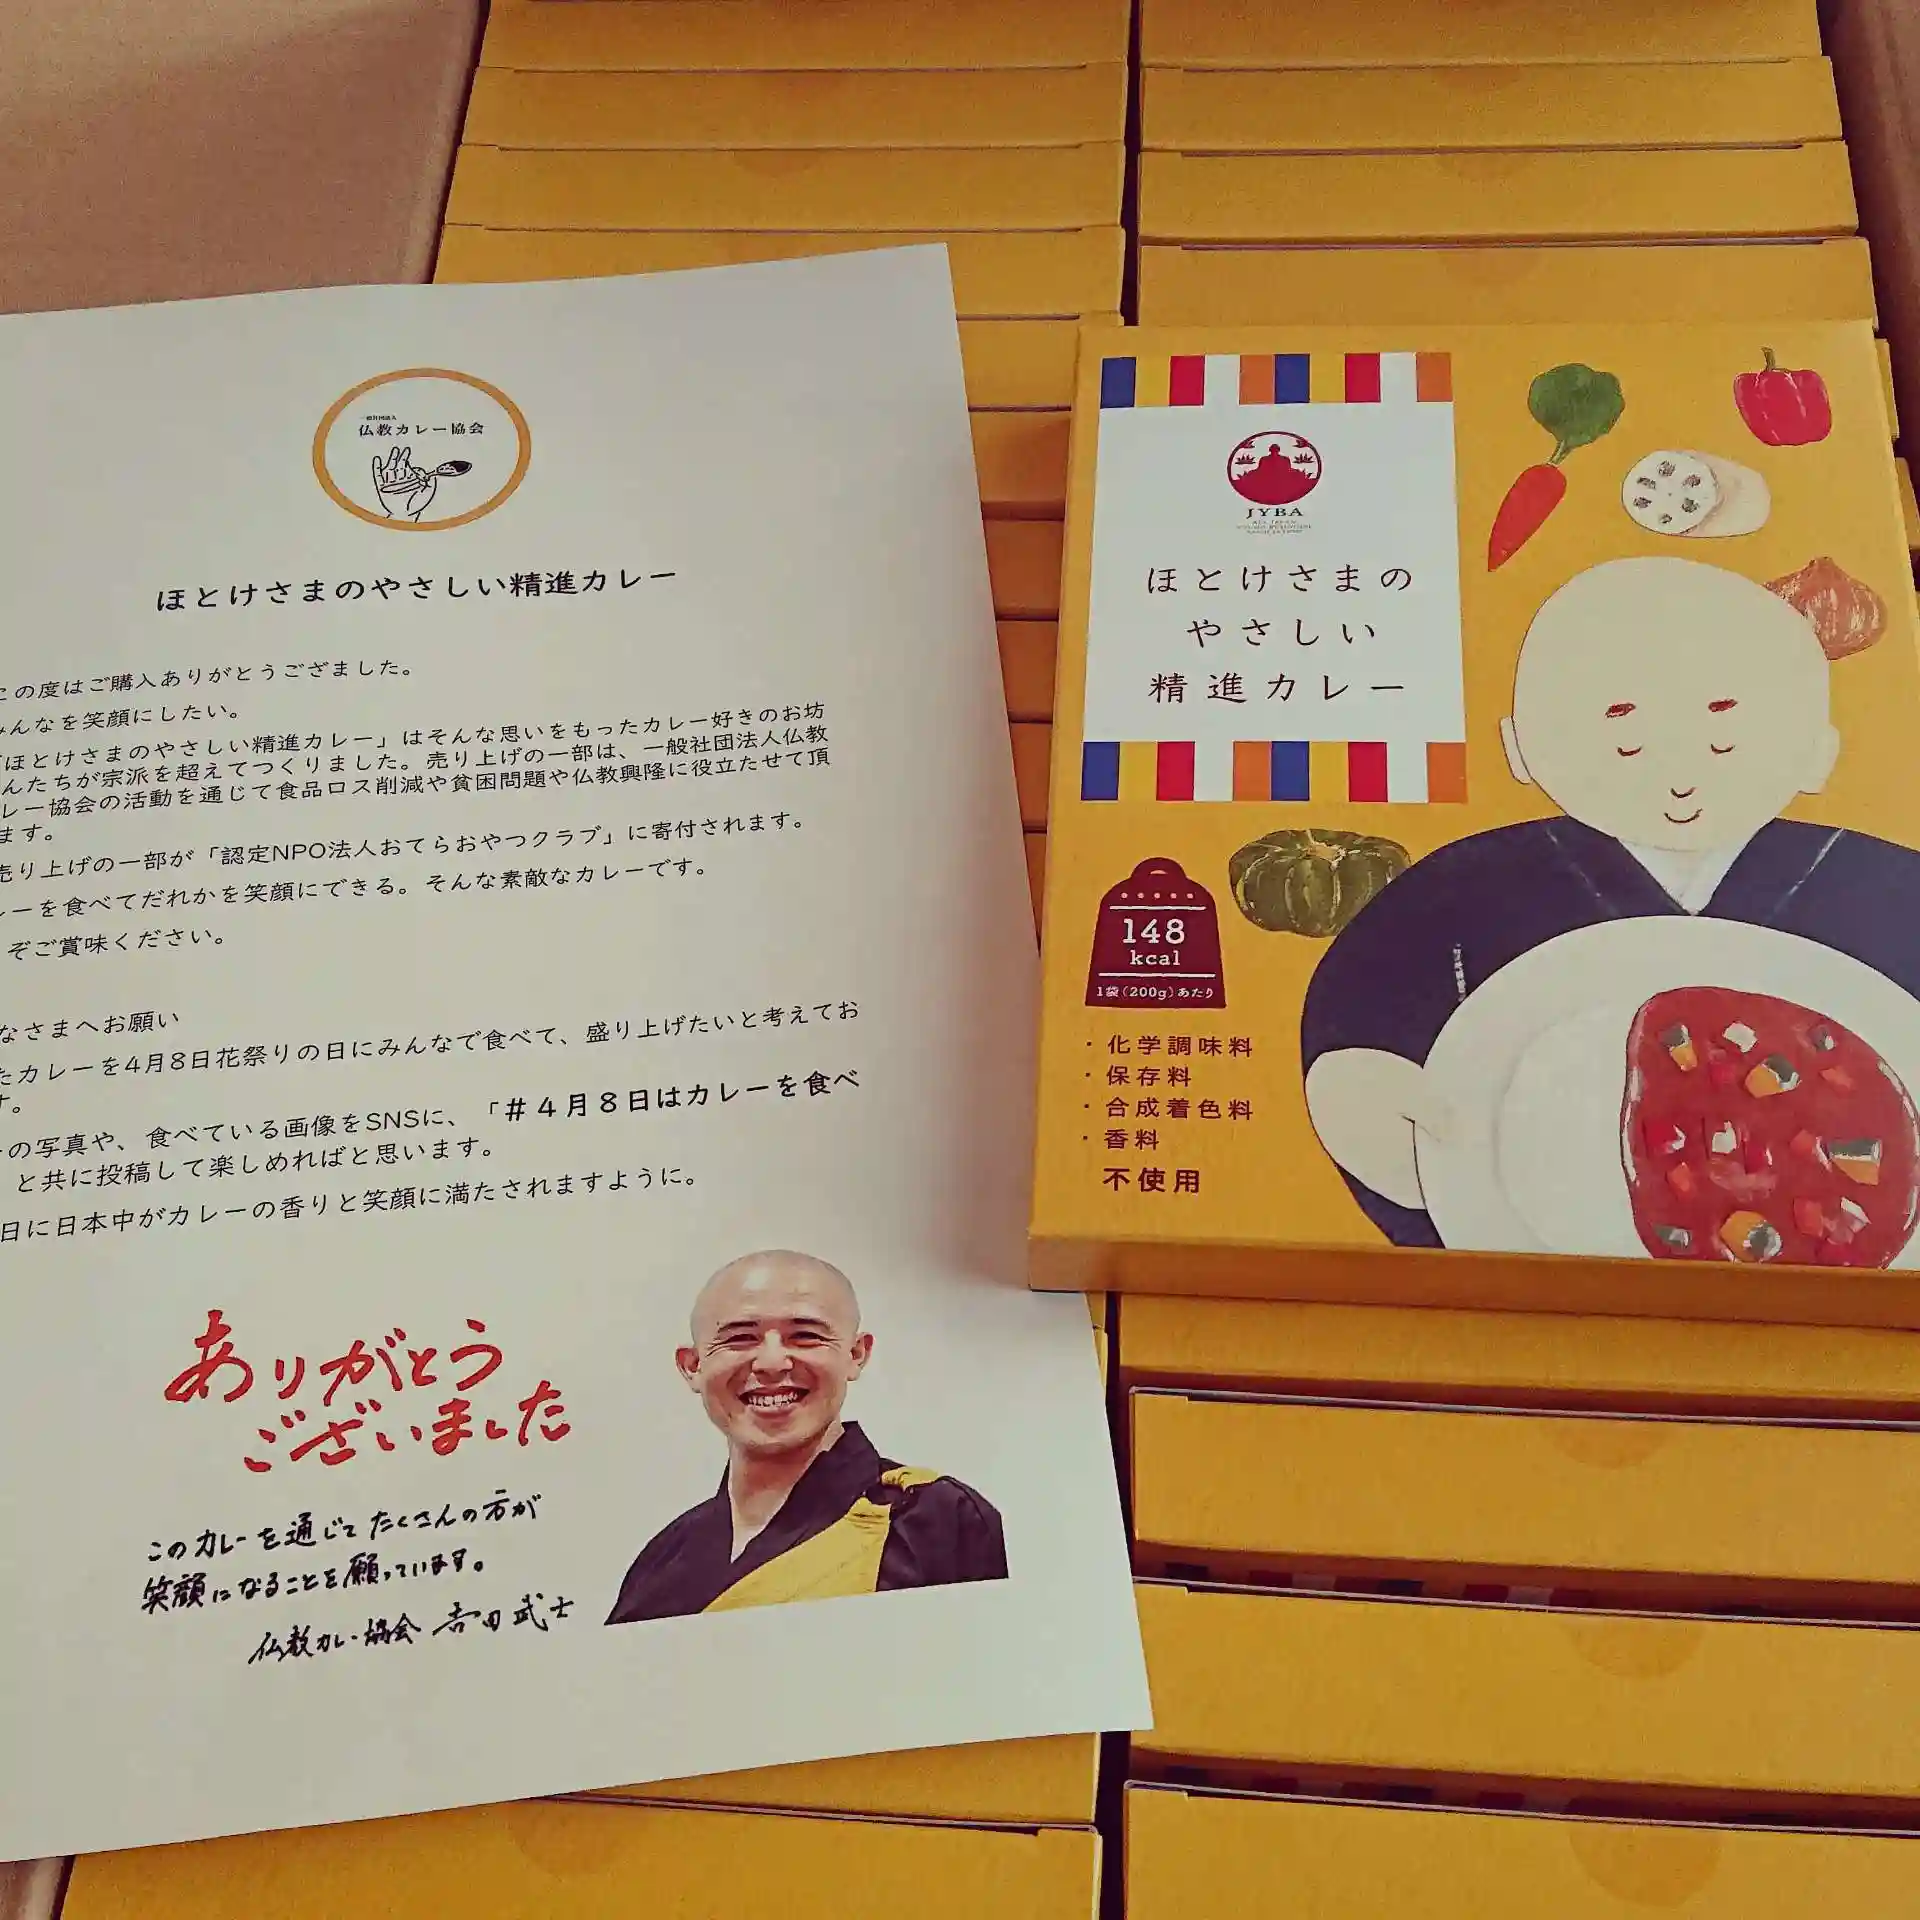 一般社団法人
仏教カレー協会
ほとけさまのやさしい精進カレー
この度はご購入ありがとうござました。
みんなを笑顔にしたい。
「ほとけさまのやさしい精進カレー」はそんな思いをもったカレー好きのお坊
んたちが宗派を超えてつくりました。売り上げの一部は、一般社団法人仏教
レー協会の活動を通じて食品ロス削減や貧困問題や仏教興隆に役立たせて頂
ます。
売り上げの一部が「認定NPO法人おてらおやつクラブ」に寄付されます。
レーを食べてだれかを笑顔にできる。そんな素敵なカレーです。
ぞご賞味ください。
なさまへお願い
たカレーを4月8日花祭りの日にみんなで食べて、盛り上げたいと考えてお
す。
の写真や、食べている画像をSNSに、「＃４月８日はカレーを食べ
」と共に投稿して楽しめればと思います。
日に日本中がカレーの香りと笑顔に満たされますように。
ありがとう
ございました
このカレーを通じてたくさんの方が
笑顔になることを願っています。
仏教カレー協会 吉田武士
JYBA
ほとけさまの
やさしい
精進カレー
148
kcal
1袋(200g)あたり
・化学調味料
・保存料
・合成着色料
・香料
不使用